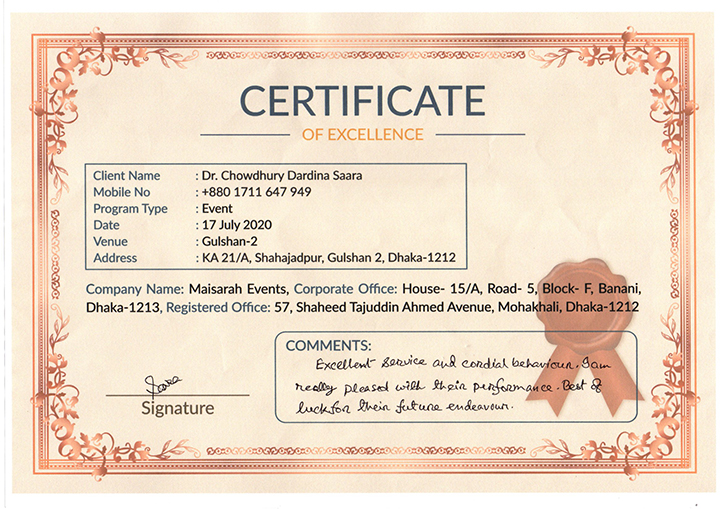 CERTIFICATE
OF EXCELLENCE
Client Name : Dr. Chowdhury Dardina Saara
Mobile No : +880 1711 647 949
Program Type : Event
Date : 17 July 2020
Venue : Gulshan-2
Address : KA 21/A, Shahajadpur, Gulshan 2, Dhaka-1212
Company Name: Maisarah Events, Corporate Office: House- 15/A, Road- 5, Block- F, Banani,
Dhaka-1213, Registered Office: 57, Shaheed Tajuddin Ahmed Avenue, Mohakhali, Dhaka-1212
COMMENTS:
Excellent service and cordial behaviour. I am
really pleased with their performance. Best of
luck for their future endeavour.
Saara
Signature